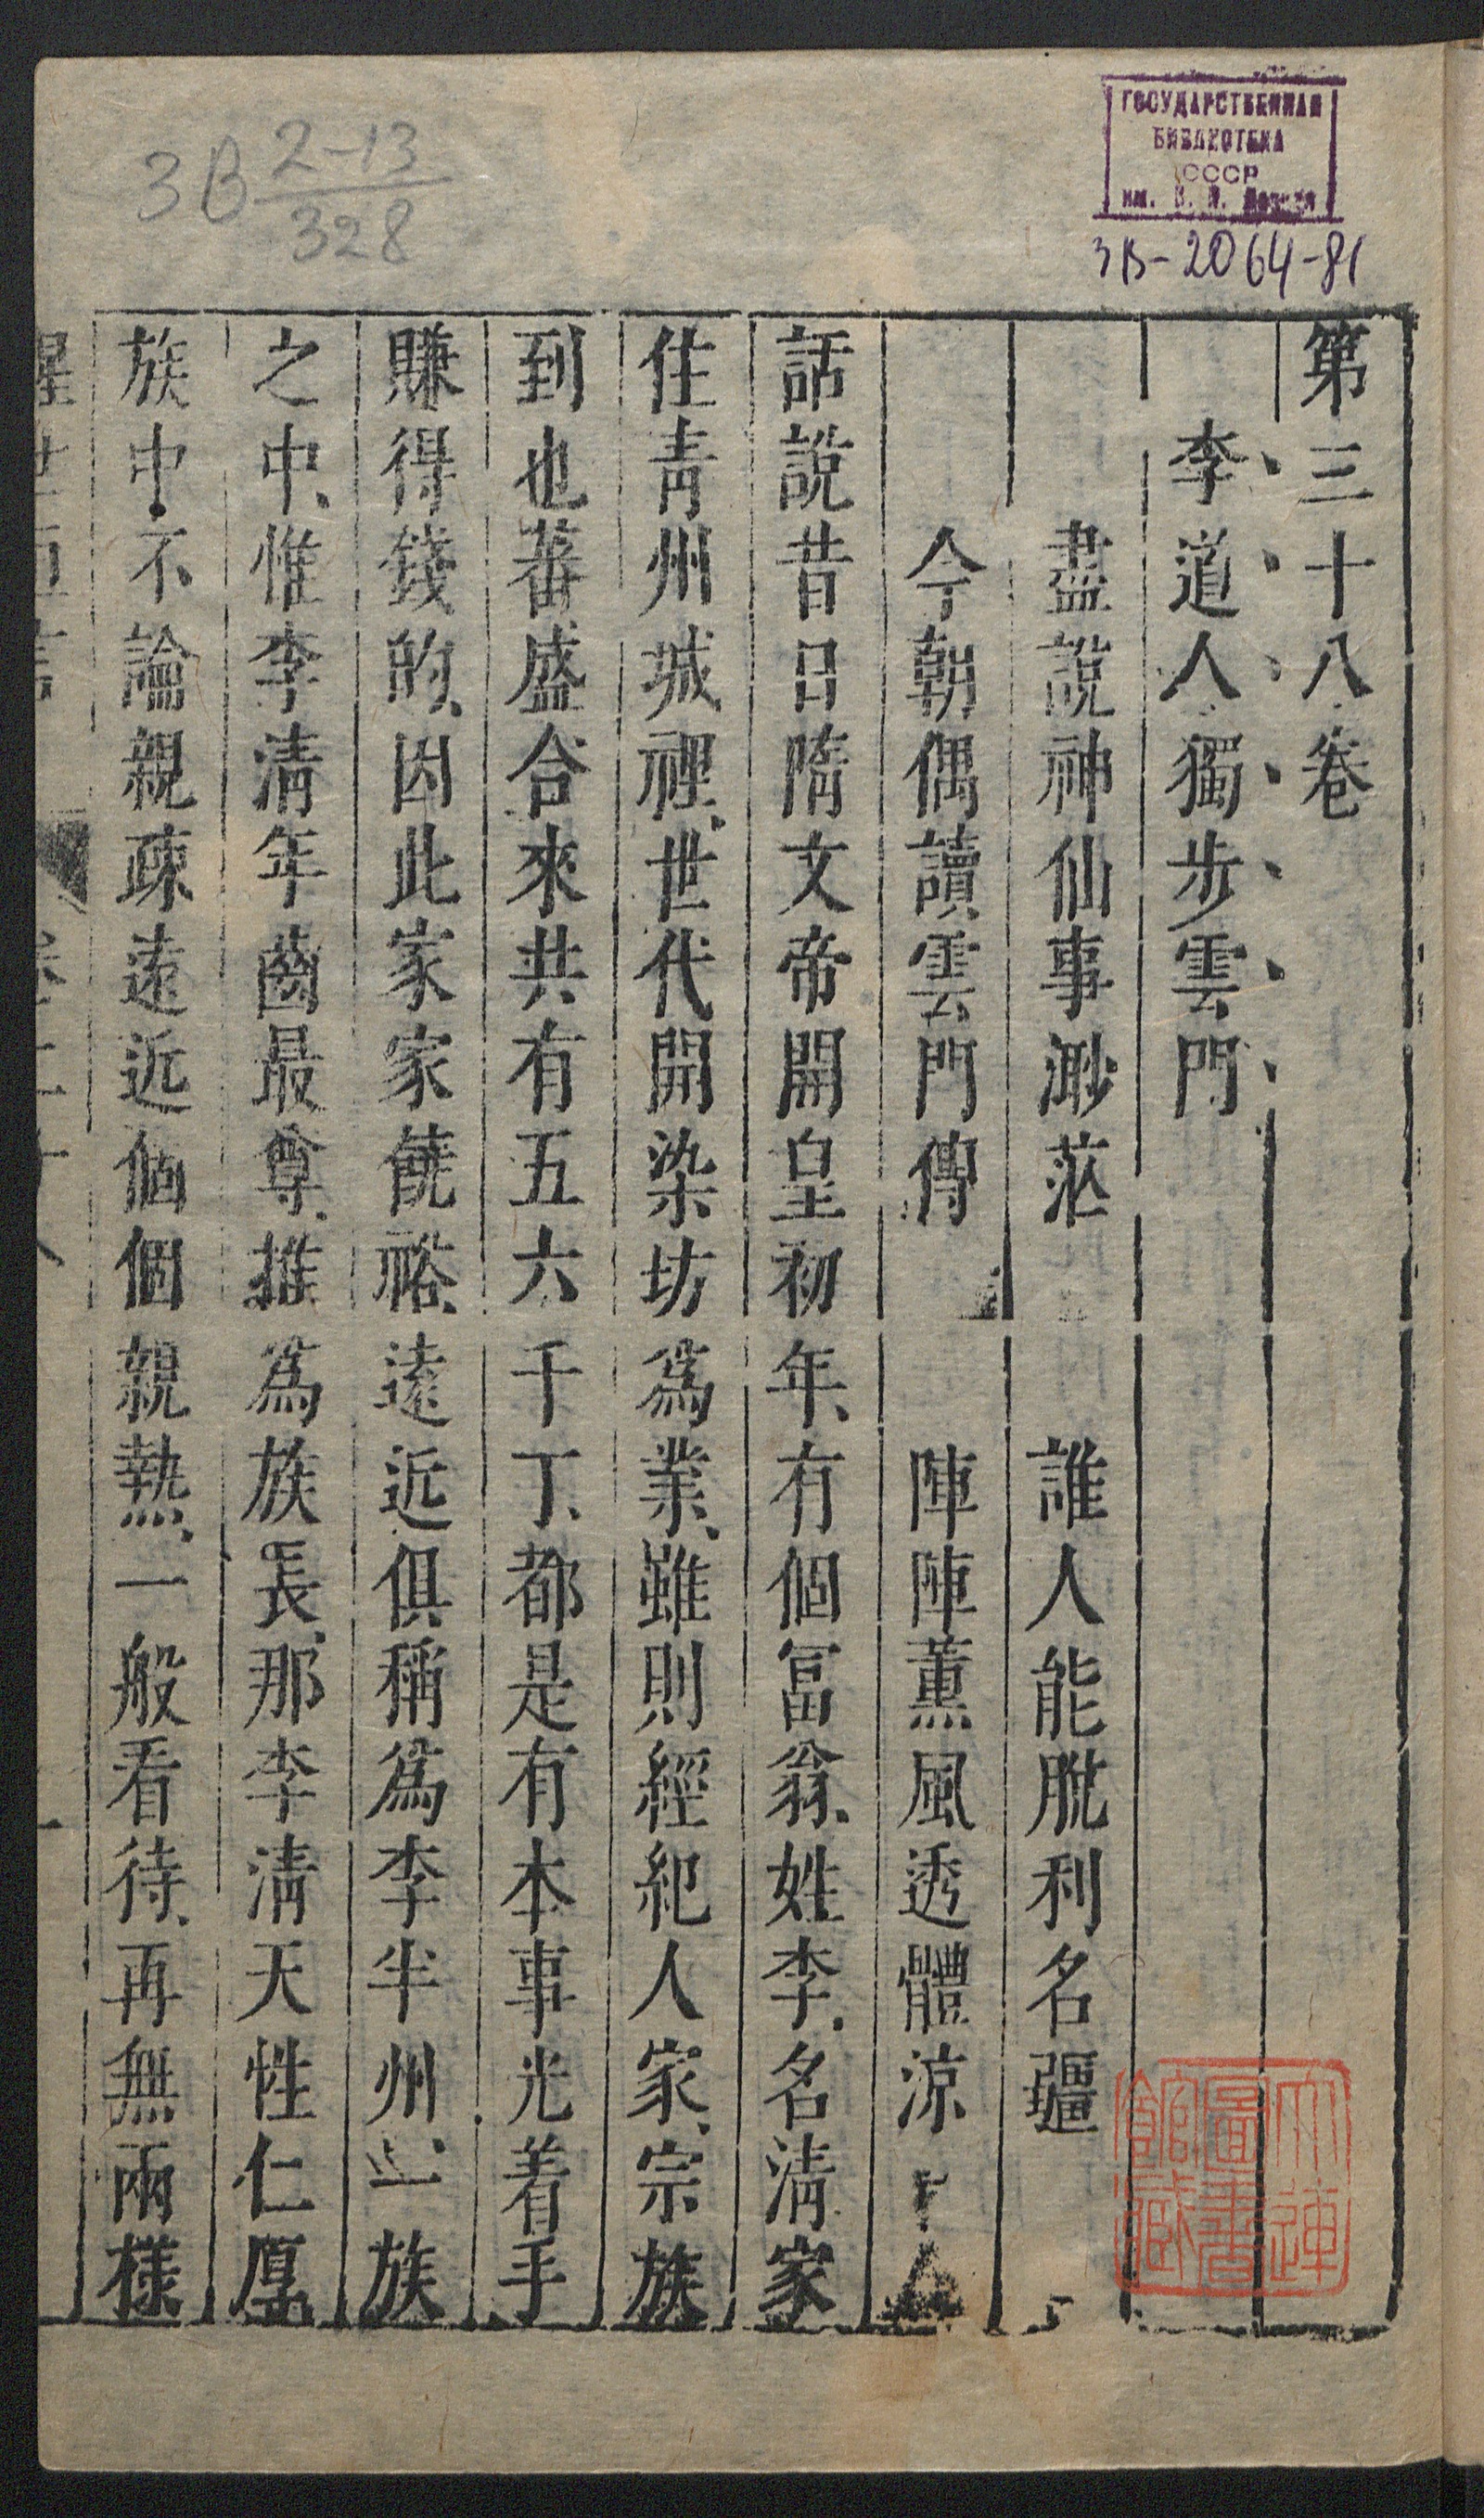 第三十八卷
李道人獨步雲門
盡說神仙事渺茫　誰人能脫利名疆
今朝偶讀雲門傳　陣陣薰風透體涼
話說昔日隋文帝開皇初年、有個冨翁、姓李、名清、家
住青州城裡、世代開染坊爲業、雖則經紀人家、宗族
到也蕃盛、合來共有五六千丁、都是有本事光着手
賺得錢的、因此家家饒裕、遠近俱稱爲李半州、一族
之中、惟李清年齒最尊、推爲族長、那李清天性仁厚
族中不論親疎遠近個個親熱、一般看待、再無兩樣
醒世恒言 卷三十八 一
ГОСУДАРСТВЕННАЯ
БИБЛИОТЕКА
СССР
им. В. И. Ленина
3В-2064-81
3В 2-13
328
大連
圖書
館藏